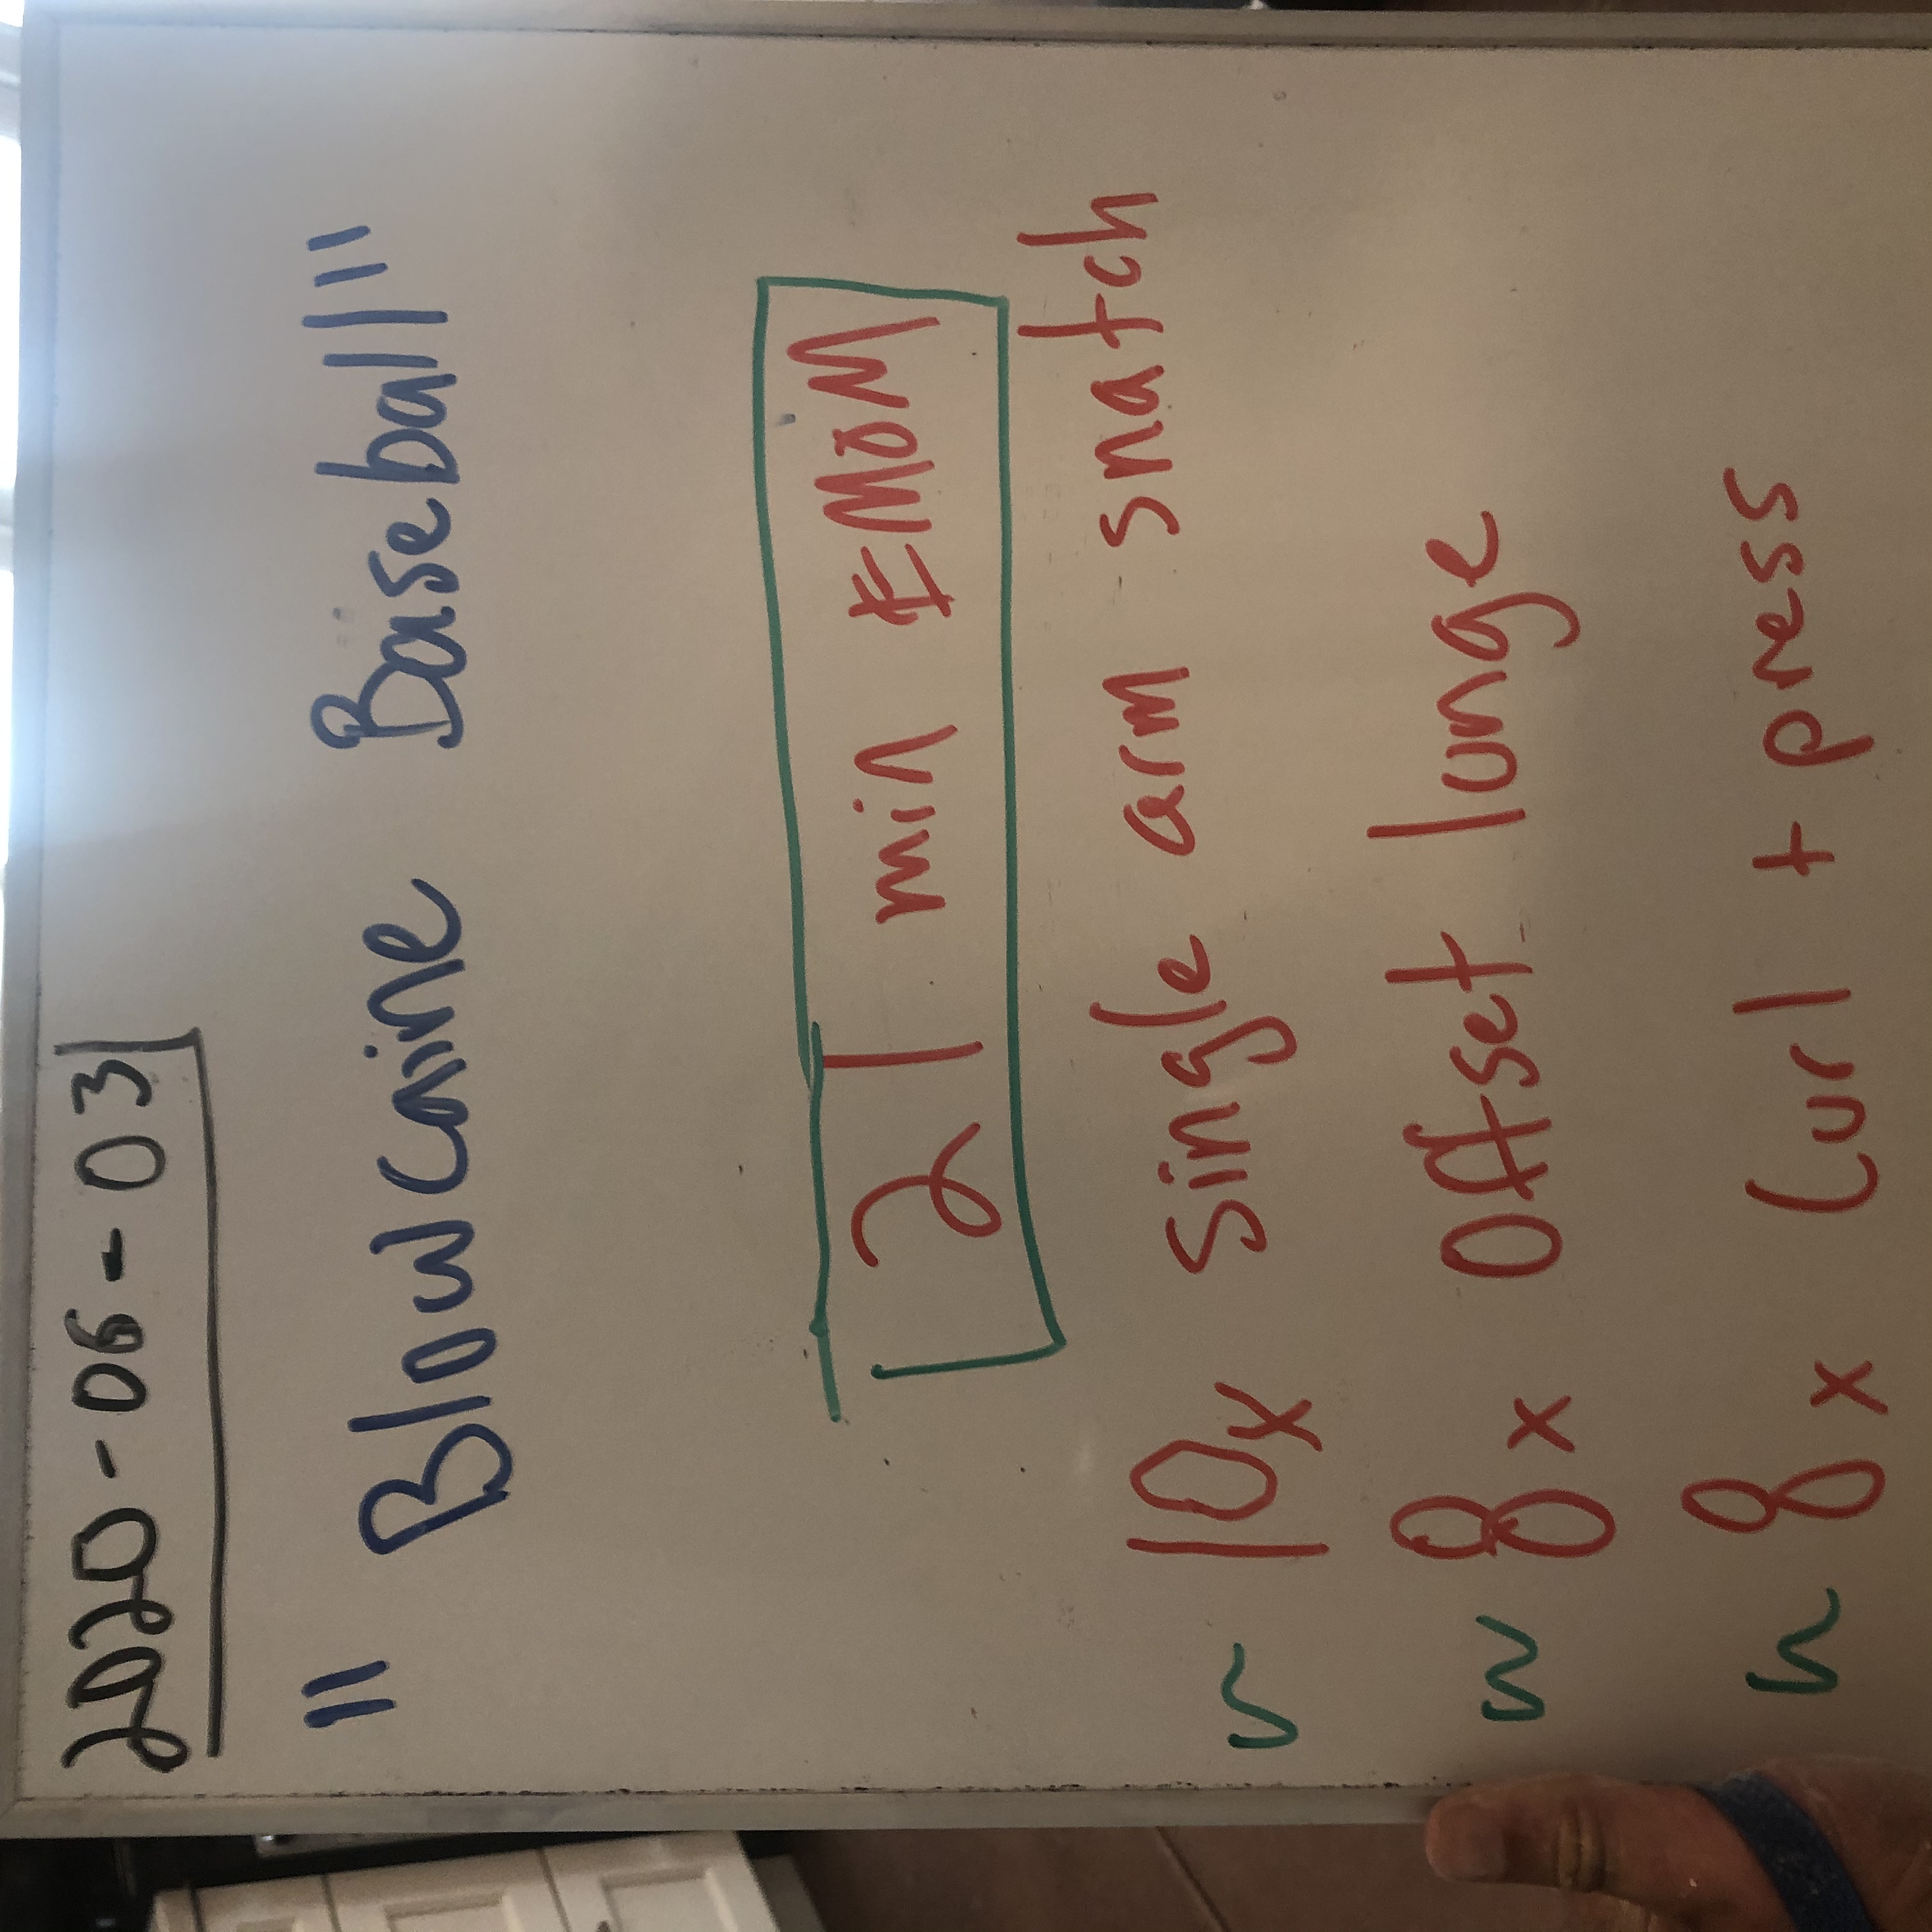 2020-06-03
"Blowcaine Baseball"
21 min EMOM
~ 10x single arm snatch
~ 8x Offset lunge
~ 8x Curl + press